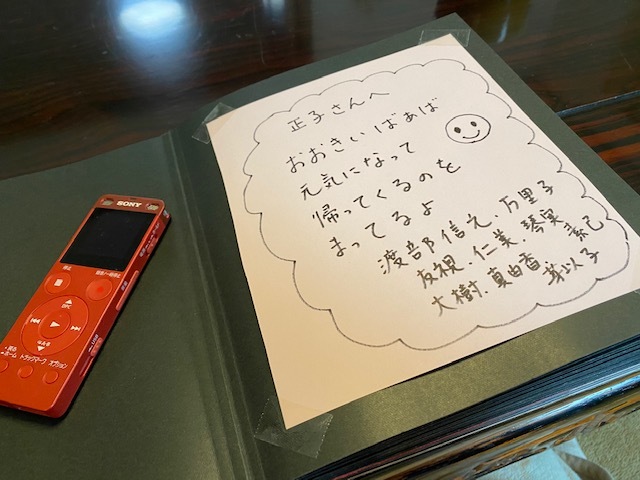 正子さんへ
おおきいばぁば
元気になって
帰ってくるのを
まってるよ
渡部信之、万里子
友視、仁美、琴実
大樹、真由香 素己
SONY
停止
録音/一時停止
DPC
A-B
戻る
ホーム トラックマーク オプション